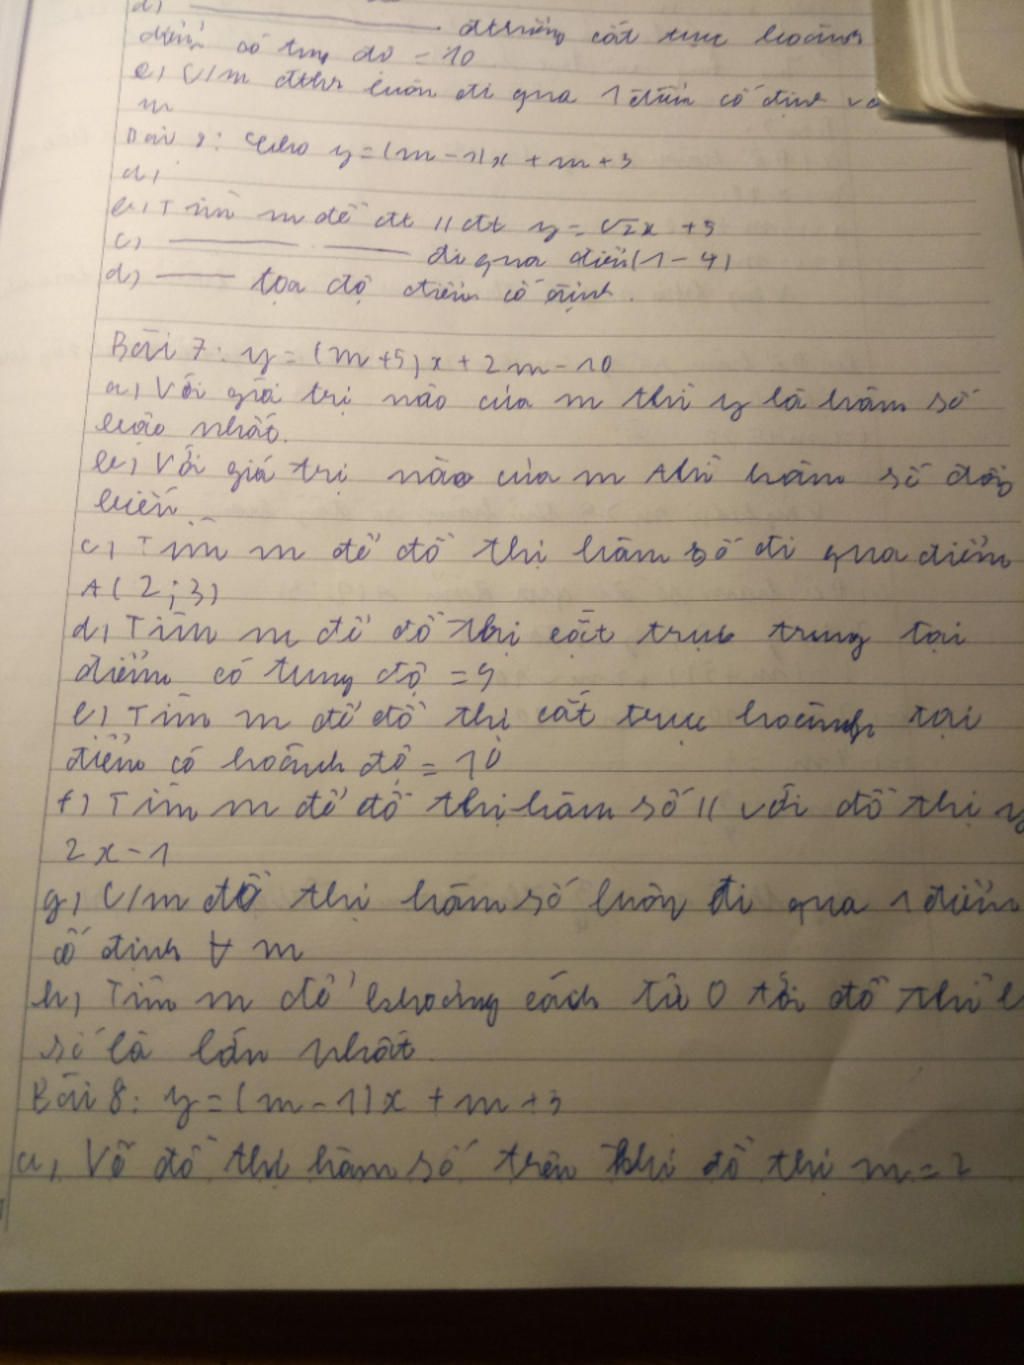 d) ——— đths cắt trục hoành
điểm có tung độ = 10
e) C/m đths luôn đi qua 1 điểm cố định
m
Bài 8: Cho y = (m - 1)x + m + 3
a)
b) Tìm m để đt // đt y = √2x + 5
c) ——— ——— đi qua điểm (1 - 4)
d) ——— tọa độ điểm cố định.
Bài 7: y = (m + 5)x + 2m - 10
a) Với giá trị nào của m thì y là hàm số
bậc nhất.
b) Với giá trị nào của m thì hàm số đồng
biến
c) Tìm m để đồ thị hàm số đi qua điểm
A(2; 3)
d) Tìm m để đồ thị cắt trục tung tại
điểm có tung độ = 9
e) Tìm m để đồ thị cắt trục hoành tại
điểm có hoành độ = 10
f) Tìm m để đồ thị hàm số // với đồ thị y
2x - 1
g) C/m đồ thị hàm số luôn đi qua 1 điểm
cố định ∀ m
h) Tìm m để khoảng cách từ O tới đồ thị
số là lớn nhất.
Bài 8: y = (m - 1)x + m + 3
a) Vẽ đồ thị hàm số trên khi đồ thị m = 2